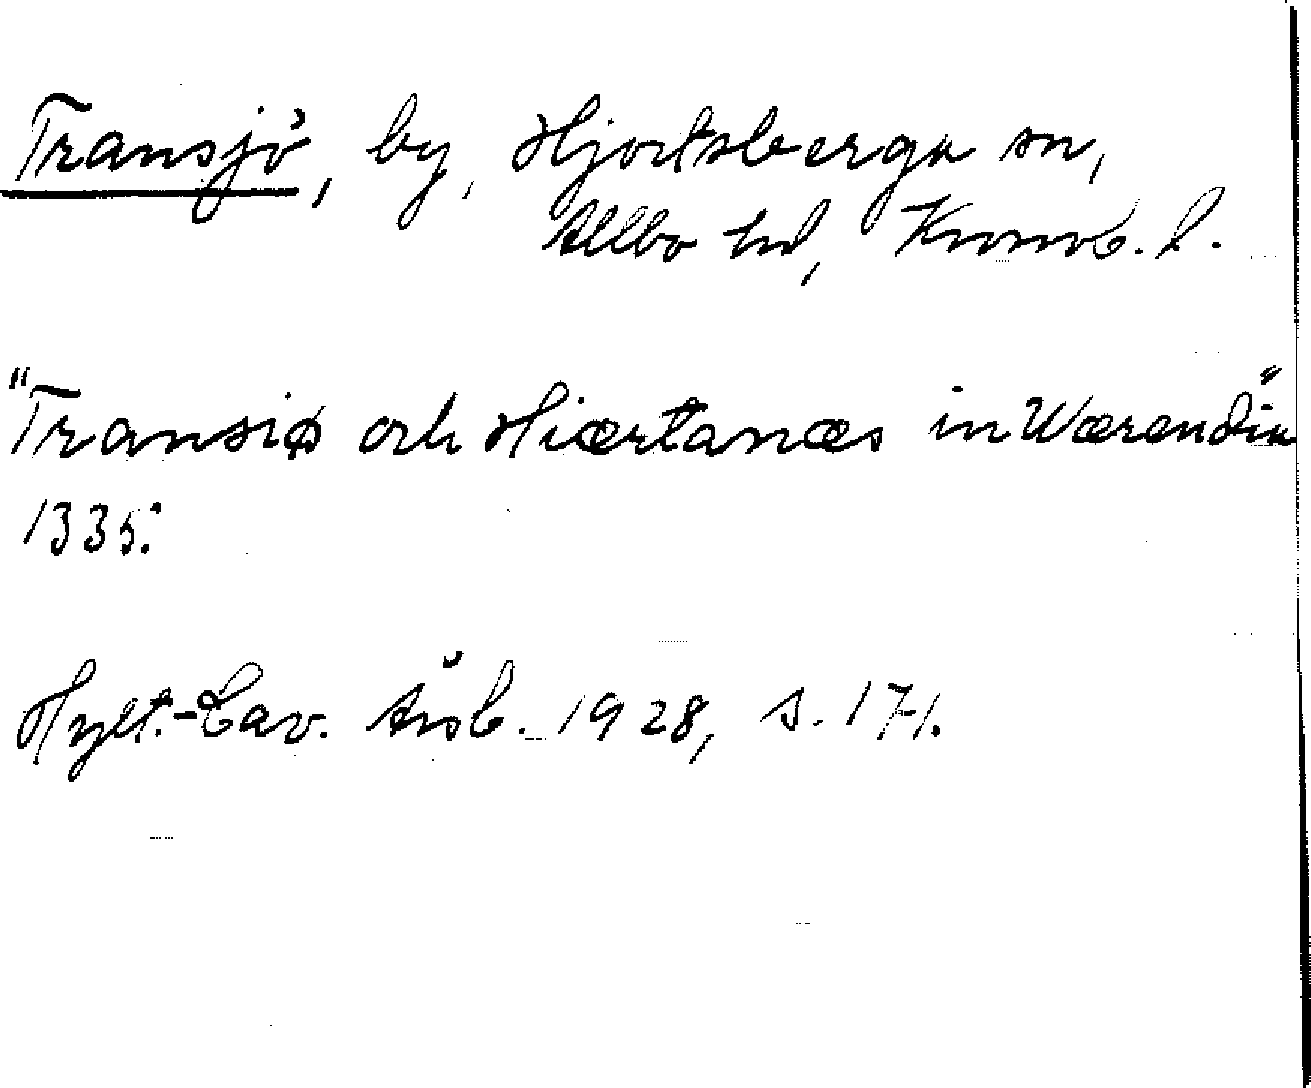 Transjö, by, Hjortsberga sn,
Allbo hd, Kronob. l.
"Transiø och Hiærtanæs in Wærendia"
1335.
Hylt.-Cav. Årsb. 1928, s. 171.